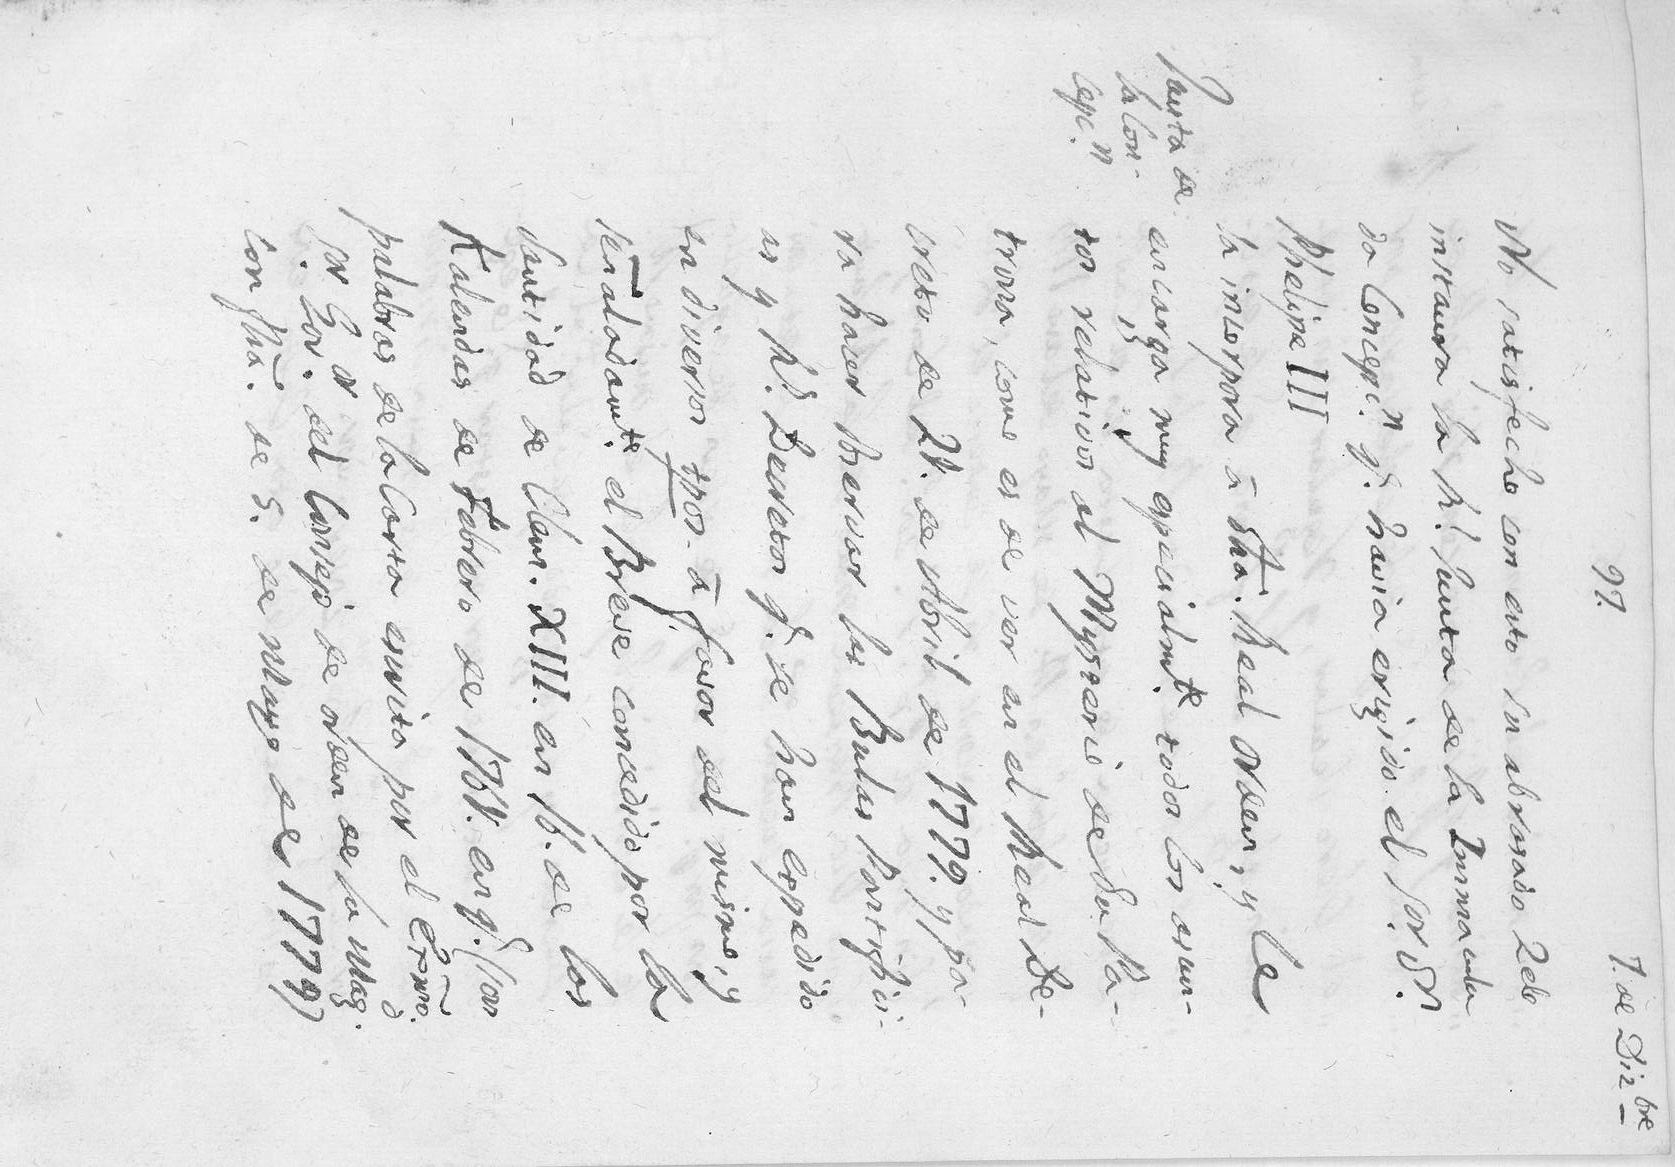 97.
7. de Diz.bre
No satisfecho con esto su abrasado Zelo
instaura la Rl. Junta de la Inmacula
da Concepc.n q.e havia erigido el Sor. Dn.
Phelipe III
la incorpora â dha. Real Orden, y le
encarga muy especialm.te todos los asun-
tos relativos al Mysterio de Su Pa-
trona, como es de ver en el Real De-
creto de 21. de Abril de 1779. y pa-
ra hacer observar las Bulas Pontifici-
as y Rs. Decretos q.e se han expedido
en diversos tpos. â favor del mismo, y
señaladam.te el Breve concedido por la
Santidad de Clem. XIII. en 16. de las
Kalendas de Febrero de 1761. en q.e Son
palabras de la Carta escrita por el Exmo.
Sor. Gov.or del Consejo de orden de su Mag.d
con fha. de 5. de Mayo de 1779)
Junta de
la Con-
cepc.n